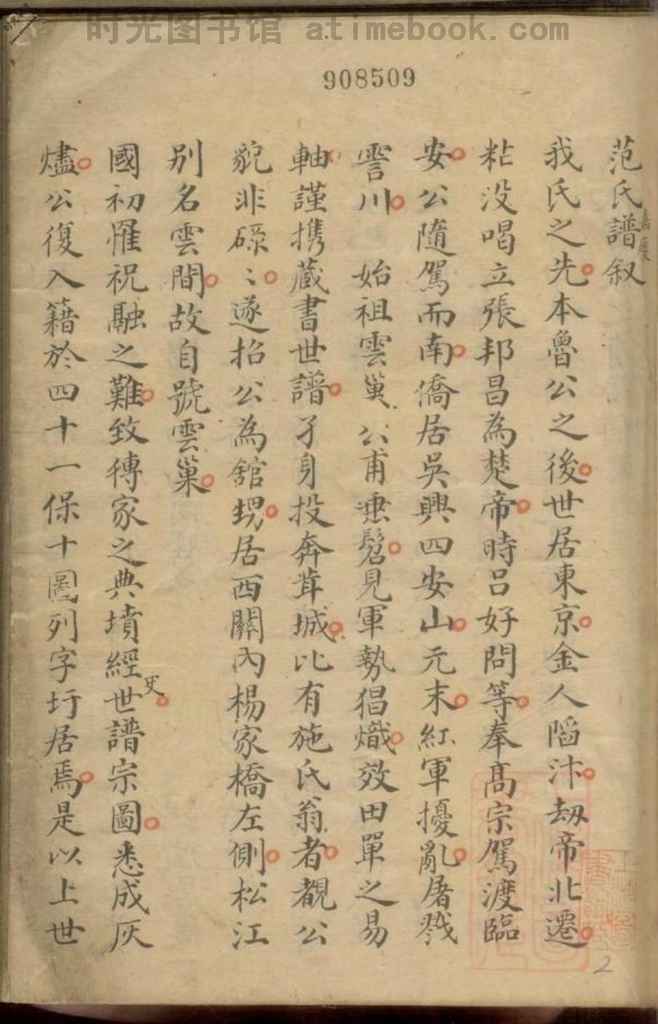 时光图书馆 atimebook.com
908509
范氏譜叙
我氏之先本魯公之後世居東京金人陷汴刼帝北遷
粘没喝立張邦昌為楚帝時呂好問等奉髙宗駕渡臨
安公隨駕而南僑居吳興四安山元末紅軍擾亂屠戮
霅川 始祖雲巢公甫垂髫見軍勢猖熾效田單之易
軸謹携蔵書世譜孑身投奔茸城比有施氏翁者覩公
貌非碌〻遂招公為舘甥居西關內楊家橋左側松江
别名雲間故自號雲巢
國初罹祝融之難致傳家之典墳經史世譜宗圖悉成灰
燼公復入籍於四十一保十圖列字圩居焉是以上世
2